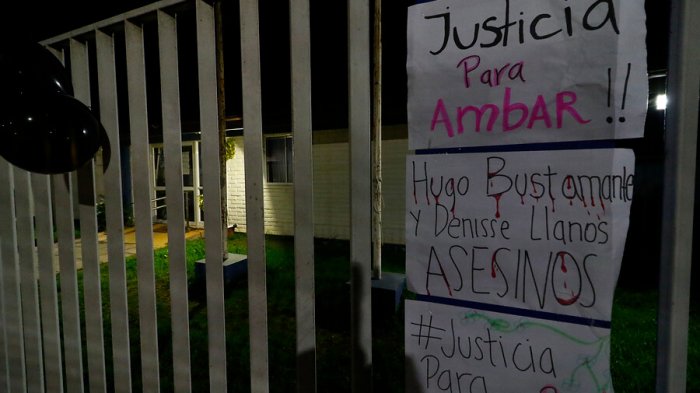 Justicia
Para
AmbAR!!
Hugo Bustamante
y Denisse Llanos
ASESINOS!
#Justicia
Para